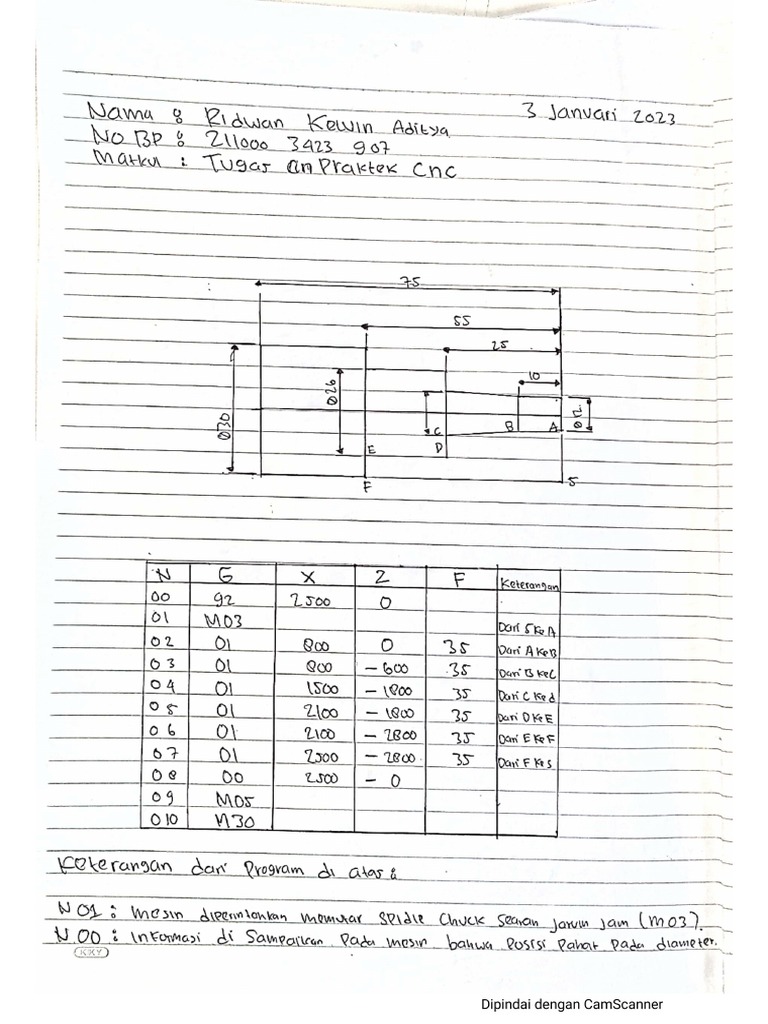 3 Januari 2023
Nama : Ridwan Kewin Aditya
No BP : 211000 3423 907
Matkul : Tugas Praktek Cnc
75
55
25
10
Ø30
Ø26
Ø12
C
B
A
E
D
F
S
N G X Z F Keterangan
00 92 2500 0
01 M03 Dari S Ke A
02 01 800 0 35 Dari A Ke B
03 01 800 - 600 35 Dari B Ke C
04 01 1500 - 1800 35 Dari C Ke d
05 01 2100 - 1800 35 Dari D Ke E
06 01 2100 - 2800 35 Dari E Ke F
07 01 2500 - 2800 35 Dari F Ke S
08 00 2500 - 0
09 M05
010 M30
Keterangan dari Program di atas :
N 01 : Mesin diperintahkan memutar Spidle Chuck Searah Jarum Jam (M03).
N 00 : Informasi di Sampaikan Pada mesin bahwa Posisi Pahat Pada diameter.
KKY
Dipindai dengan CamScanner